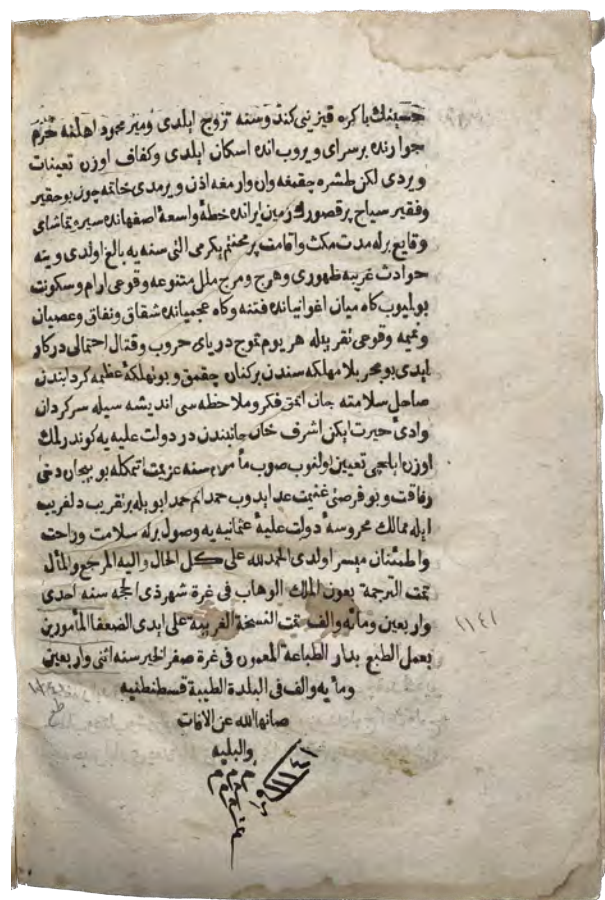 حسينك باكره قيزينى كندوسنه تزوج ايلدى ومير محمود اهلنه خرم
جوارنده بر سراى ويروب انده اسكان ايلدى وكفاف اوزن تعينات
ويردى لكن طشره چقمغه وان وارمغه اذن ويرمدى خاتمه چون بو حقير
وفقير سياح پر قصورك زمين ايرانده خطۀ واسعۀ اصفهانده سير وتماشاى
وقايع برله مدت مكث واقامت پر محنتم يكرمى التى سنه يه بالغ اولدى ويته
حوادث غريبه ظهورى وهرج ومرج ملل متنوعه وقوعى ارام وسكونت
بوليوب كاه ميان اغوانيانده فتنه وكاه عجميانده شقاق ونفاق وعصيان
ونميمه وقوعى تقريبله هر يوم تموج درياى حروب وقتال احتمالى دركار
ايدى بو بحر بلا مهلكه سندن بركنان چقمق وبو تهلكۀ عظيمه كردابندن
ساحل سلامته جان اتمق فكر وملاحظه سى انديشه سيله سركردان
وادئ حيرت ايكن اشرف خان جانبندن در دولت عليه يه كوندرلمك
اوزن ايلچى تعيين اولنوب صوب مأ سنه عزيمت اتمكله بو بيجان دخى
رفاقت وبو فرصتى غنيمت عد ايدوب حمدا ثم حمدا بويله بر تقريب دلفريب
ايله ممالك محروسۀ دولت عليۀ عثمانيه يه وصول برله سلامت وراحت
واطمئنان ميسر اولدى الحمد لله على كل الحال واليه المرجع والمآل
تمت الترجمة بعون الملك الوهاب فى غرة شهر ذى الحجه سنه احدى
واربعين ومأيه والف تمت النسخة الغريبه على ايدى الضعفا المأمورين
بعمل الطبع بدار الطباعة المعمون فى غرة صفر الخير سنه اثنى واربعين
ومأيه والف فى البلدة الطيبة قسطنطنيه
صانها الله عن الافات
والبليه
١١٤١